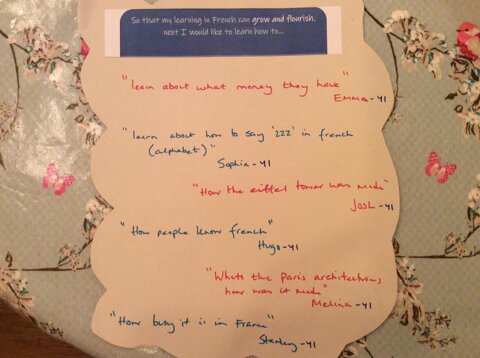 So that my learning in French can grow and flourish,
next I would like to learn how to...
"learn about what money they have"
Emma - Y1
"learn about how to say 'zzz' in french
(alphabet)"
Sophia - Y1
"How the eiffel tower was made"
Josh - Y1
"How people know french"
Hugo - Y1
"Whats the paris architecture,
how was it made"
Melina - Y1
"How busy it is in France"
Stanley - Y1